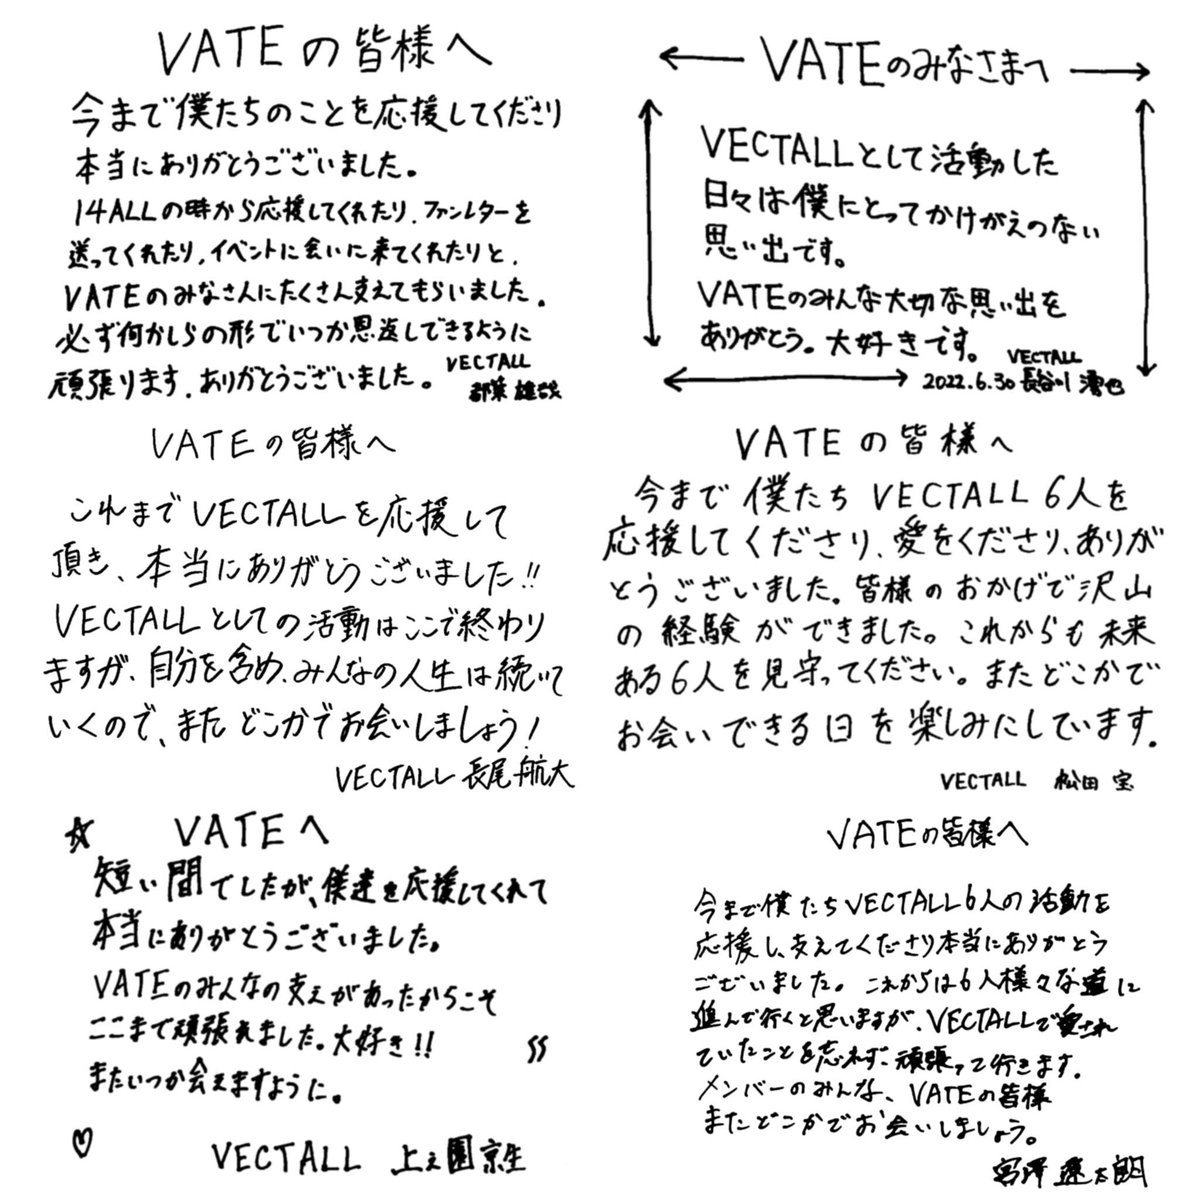 VATEの皆様へ
今まで僕たちのことを応援してくださり
本当にありがとうございました。
14ALLの時から応援してくれたり、ファンレターを
送ってくれたり、イベントに会いに来てくれたりと、
VATEのみなさんにたくさん支えてもらいました。
必ず何かしらの形でいつか恩返しできるように
頑張ります。ありがとうございました。
VECTALL
都築 雄哉
VATEのみなさまへ
VECTALLとして活動した
日々は僕にとってかけがえのない
思い出です。
VATEのみんな大切な思い出を
ありがとう。大好きです。
VECTALL
2022.6.30 長谷川 澪也
VATEの皆様へ
これまでVECTALLを応援して
頂き、本当にありがとうございました!!
VECTALLとしての活動はここで終わり
ますが、自分を含め、みんなの人生は続いて
いくので、またどこかでお会いしましょう!
VECTALL 長尾航大
VATEの皆様へ
今まで僕たちVECTALL 6人を
応援してくださり、愛をくださり、ありが
とうございました。皆様のおかげで沢山
の経験ができました。これからも未来
ある6人を見守ってください。またどこかで
お会いできる日を楽しみにしています。
VECTALL 松田 宝
☆ VATEへ
短い間でしたが、僕達を応援してくれて
本当にありがとうございました。
VATEのみんなの支えがあったからこそ
ここまで頑張れました。大好き!!
またいつか会えますように。
♡ VECTALL 上之園京生
VATEの皆様へ
今まで僕たちVECTALL6人の活動を
応援し、支えてくださり本当にありがとう
ございました。これからは6人様々な道に
進んで行くと思いますが、VECTALLで愛され
ていたことを忘れず、頑張って行きます。
メンバーのみんな、VATEの皆様
またどこかでお会いしましょう。
宮澤 遼太朗